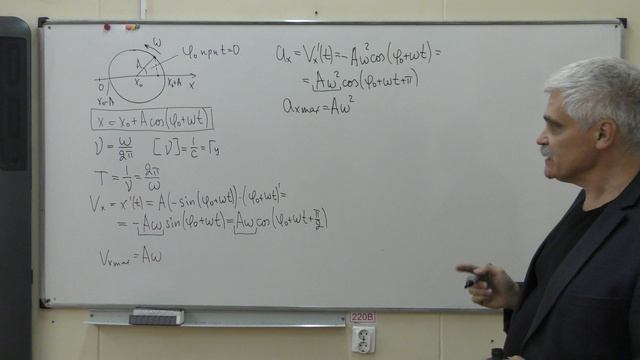 ω
φ₀ при t=0
A
0
x₀
x₀+A
x
x₀-A
x = x₀ + A cos(φ₀+ωt)
ν = ω/2π [ν] = 1/c = Гц
T = 1/ν = 2π/ω
Vₓ = x'(t) = A(-sin(φ₀+ωt))·(φ₀+ωt)' =
= -Aω sin(φ₀+ωt) = Aω cos(φ₀+ωt+π/2)
Vₓmax = Aω
aₓ = Vₓ'(t) = -Aω² cos(φ₀+ωt) =
= Aω² cos(φ₀+ωt+π)
aₓmax = Aω²
220В